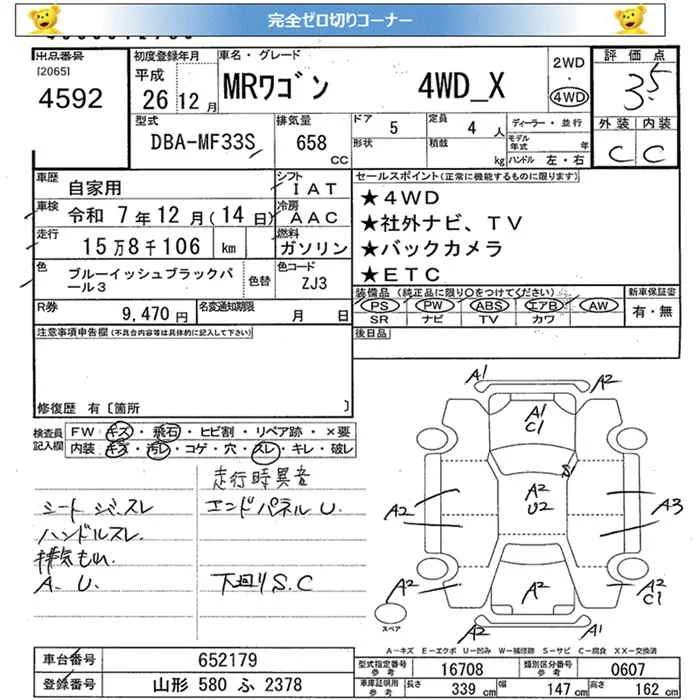 完全ゼロ切りコーナー
出品番号
[2065]
4592
初度登録年月
平成
26年12月
車名・グレード
MRワゴン 4WD_X
2WD
・
4WD
評価点
3.5
外装 内装
C C
型式
DBA-MF33S
排気量
658
CC
ドア
5
形状
定員
4人
積載
kg
ディーラー・並行
モデル年式 年
ハンドル 左・右
車歴 自家用
シフト IAT
車検 令和 7年12月(14日)
冷房 AAC
走行 15万8千106 km
燃料 ガソリン
色 ブルーイッシュブラックパール3
色替
色コード ZJ3
R券 9,470円
名変通知期限 月 日
セールスポイント(正常に機能するものに限ります)
★4WD
★社外ナビ、TV
★バックカメラ
★ETC
装備品 (純正品に限り○をつけてください)
PS PW ABS エアB AW
SR ナビ TV カワ
新車保証書
有・無
後日品
注意事項申告欄(不具合内容等は具体的に記入して下さい)
修復歴 有〔箇所 〕
検査員記入欄
FW キズ・飛石・ヒビ割・リペア跡・×要
内装 キズ・汚レ・コゲ・穴・スレ・キレ・破レ
走行時異音
シート シミ.スレ エンドパネル U.
ハンドルスレ.
排気もれ.
A.U. 下廻りS.C
A1 A2
A1
C1
S
A2 A2 U2 A3
A2 A2 A2
C1
A2 A1
スペア
A-キズ E-エクボ U-凹み W-補修跡 S-サビ C-腐食 XX-交換済
車台番号 652179
登録番号 山形 580 ふ 2378
型式指定番号 参考 16708
類別区分番号 参考 0607
車庫証明用 参考 長さ 339 cm 幅 147 cm 高さ 162 cm